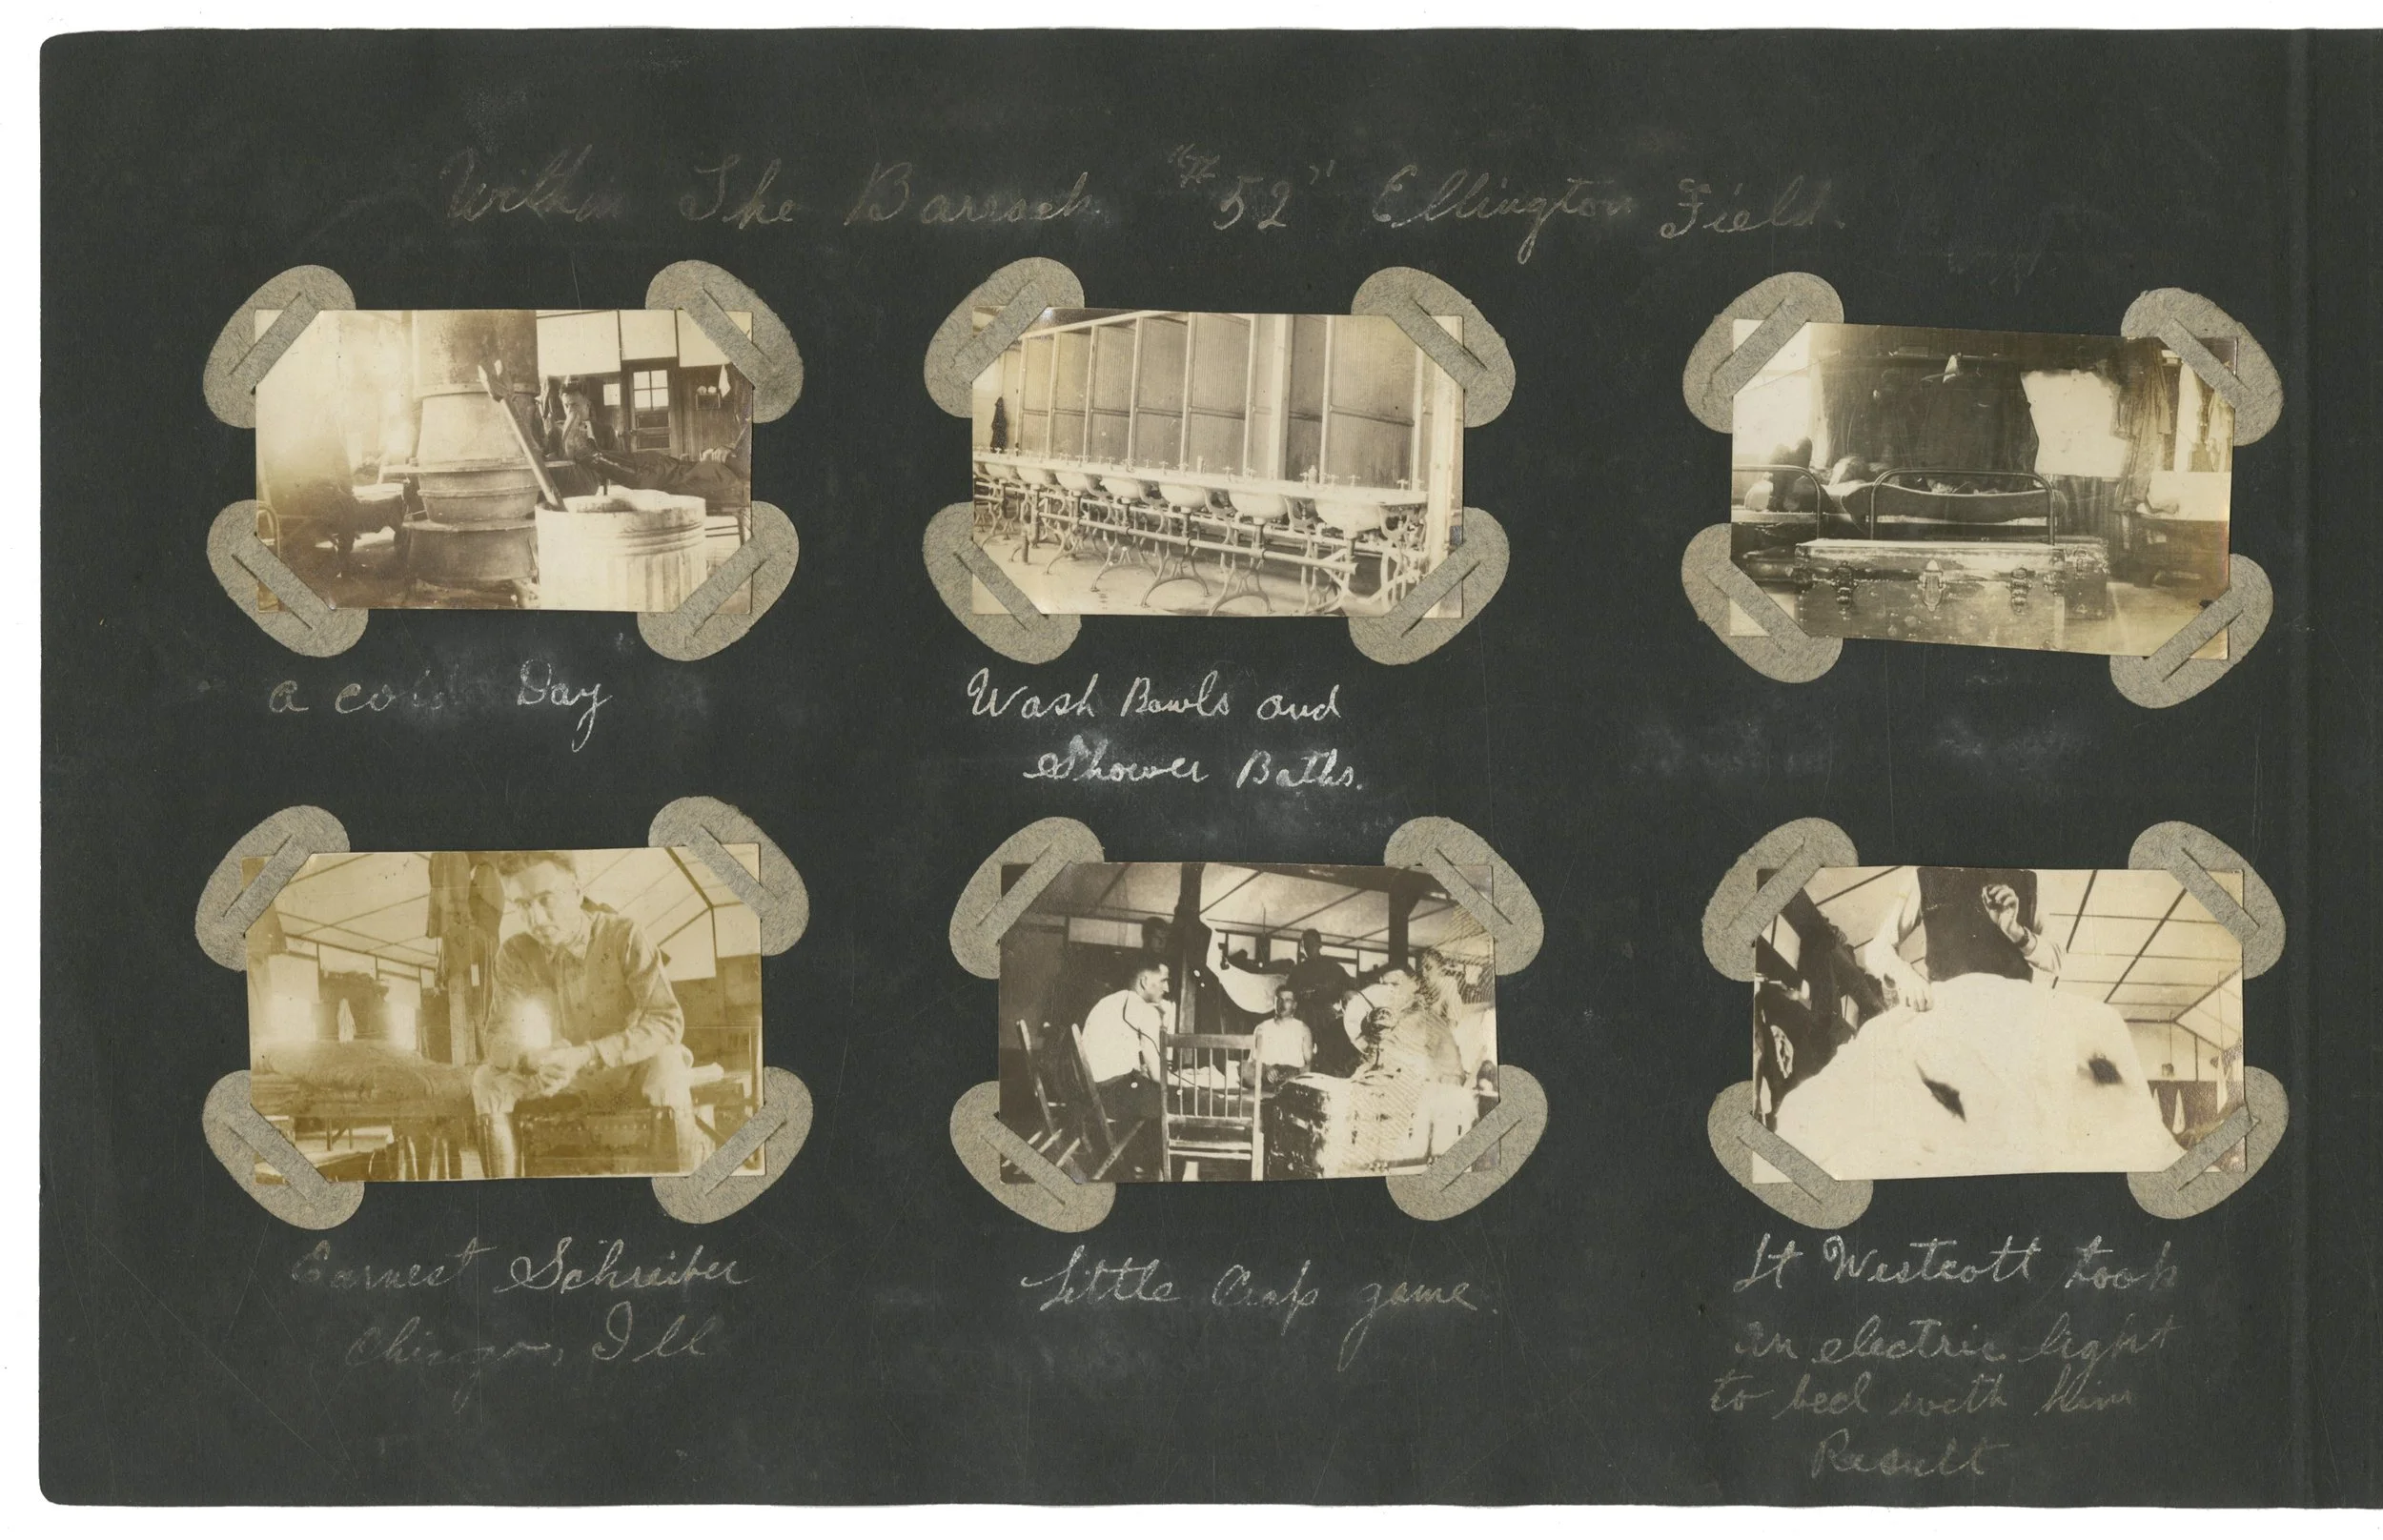 Within The Barrack "#52" Ellington Field.
a cold Day
Wash Bowls and
Shower Baths.
Earnest Schreiber
Chicago, Ill
Little Crap game.
Lt Westcott took
an electric light
to bed with him
Result